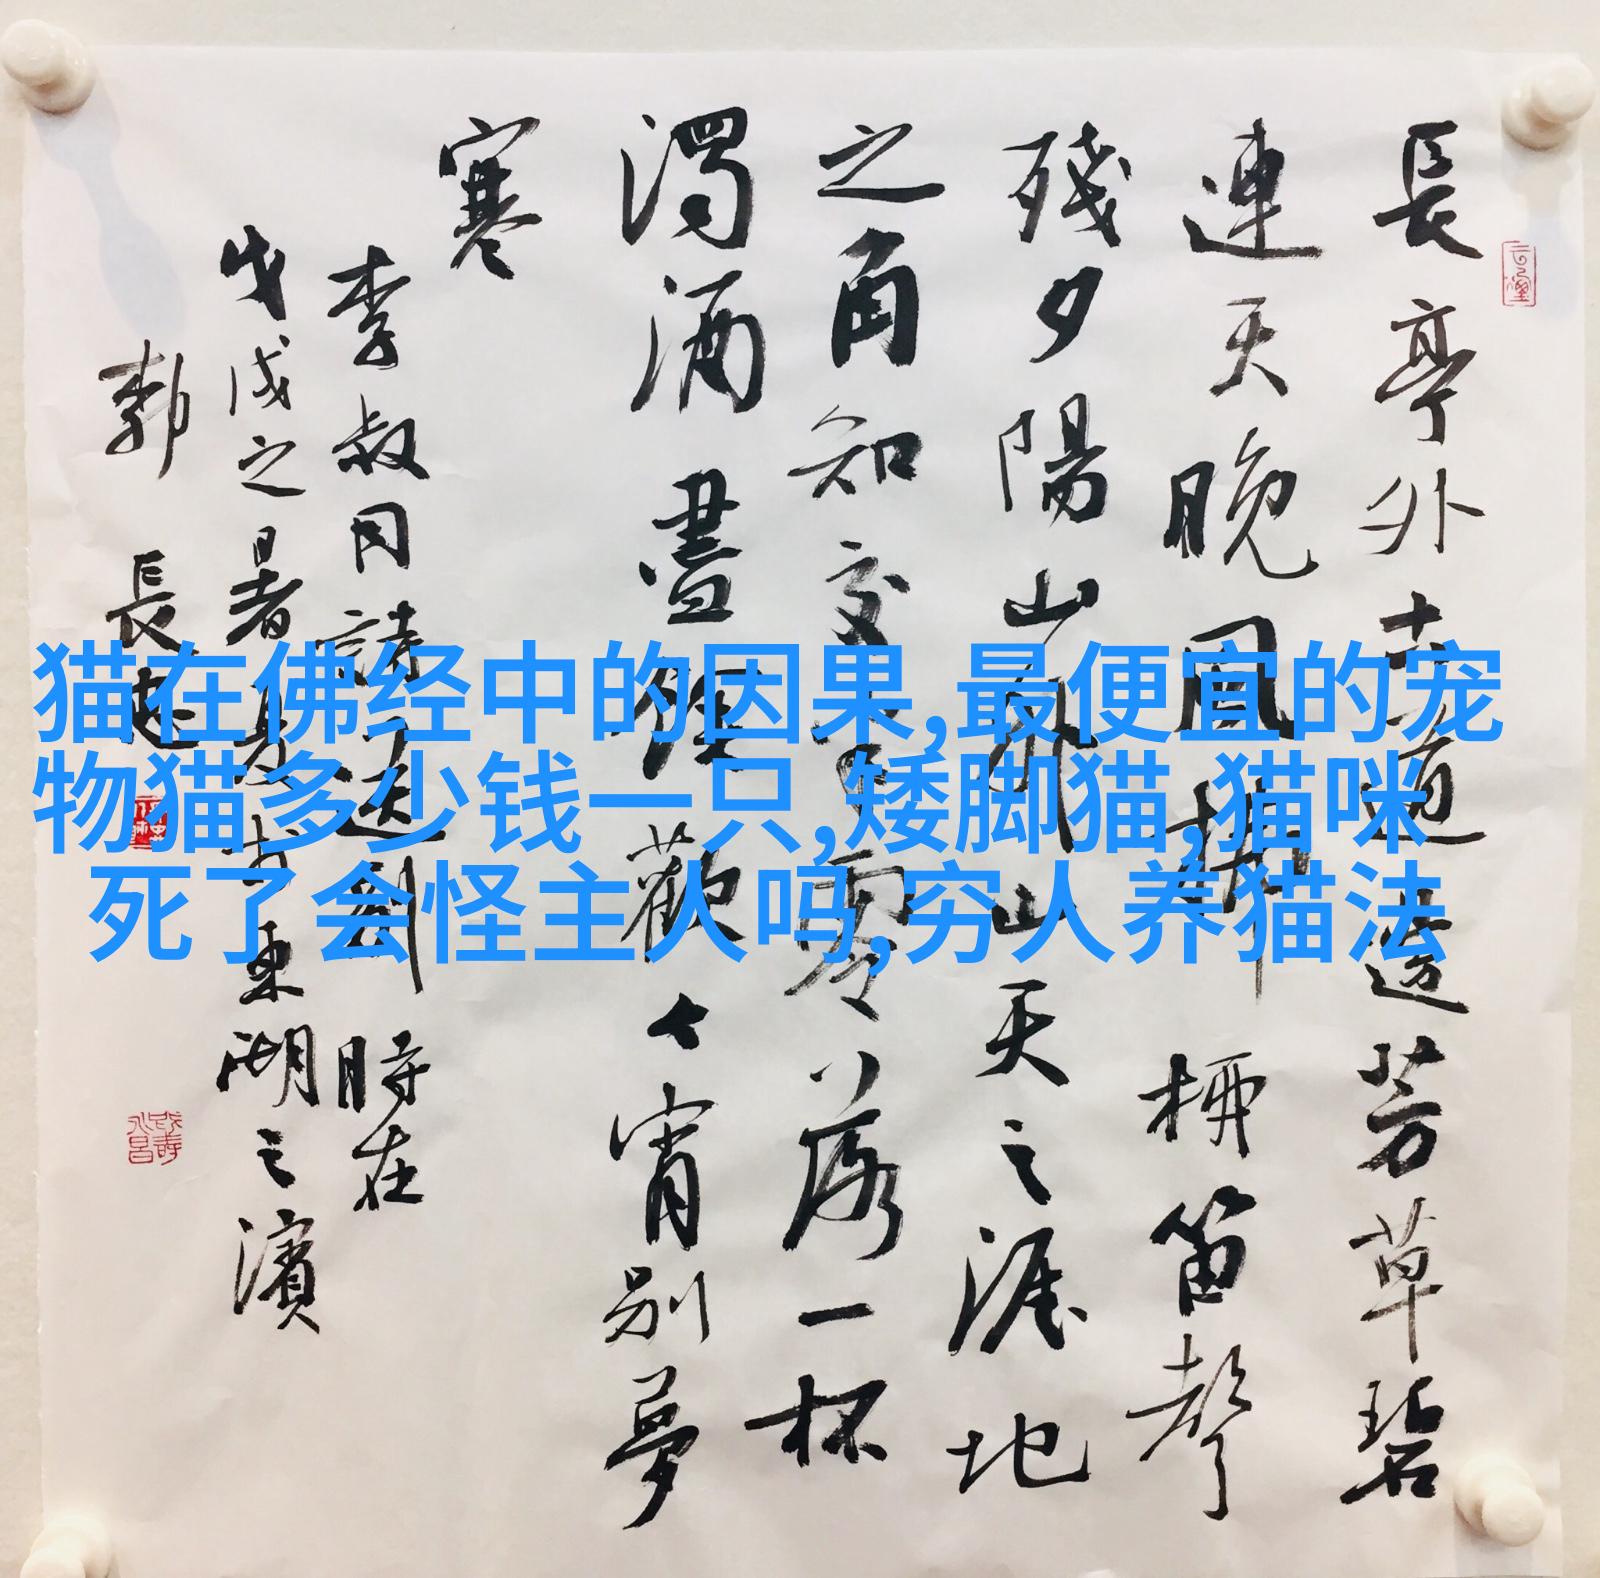 長亭外古道邊芳草碧
連天晚風拂柳笛聲
殘夕陽山外山天之涯地
之角知交半零落一杯
濁酒盡餘歡今宵別夢
寒
李叔同詩送別 時在
戊戌之暑東湖之濱
長
猫在佛经中的因果,最便宜的宠
物猫多少钱一只,矮脚猫,猫咪
死了会怪主人吗,穷人养猫法